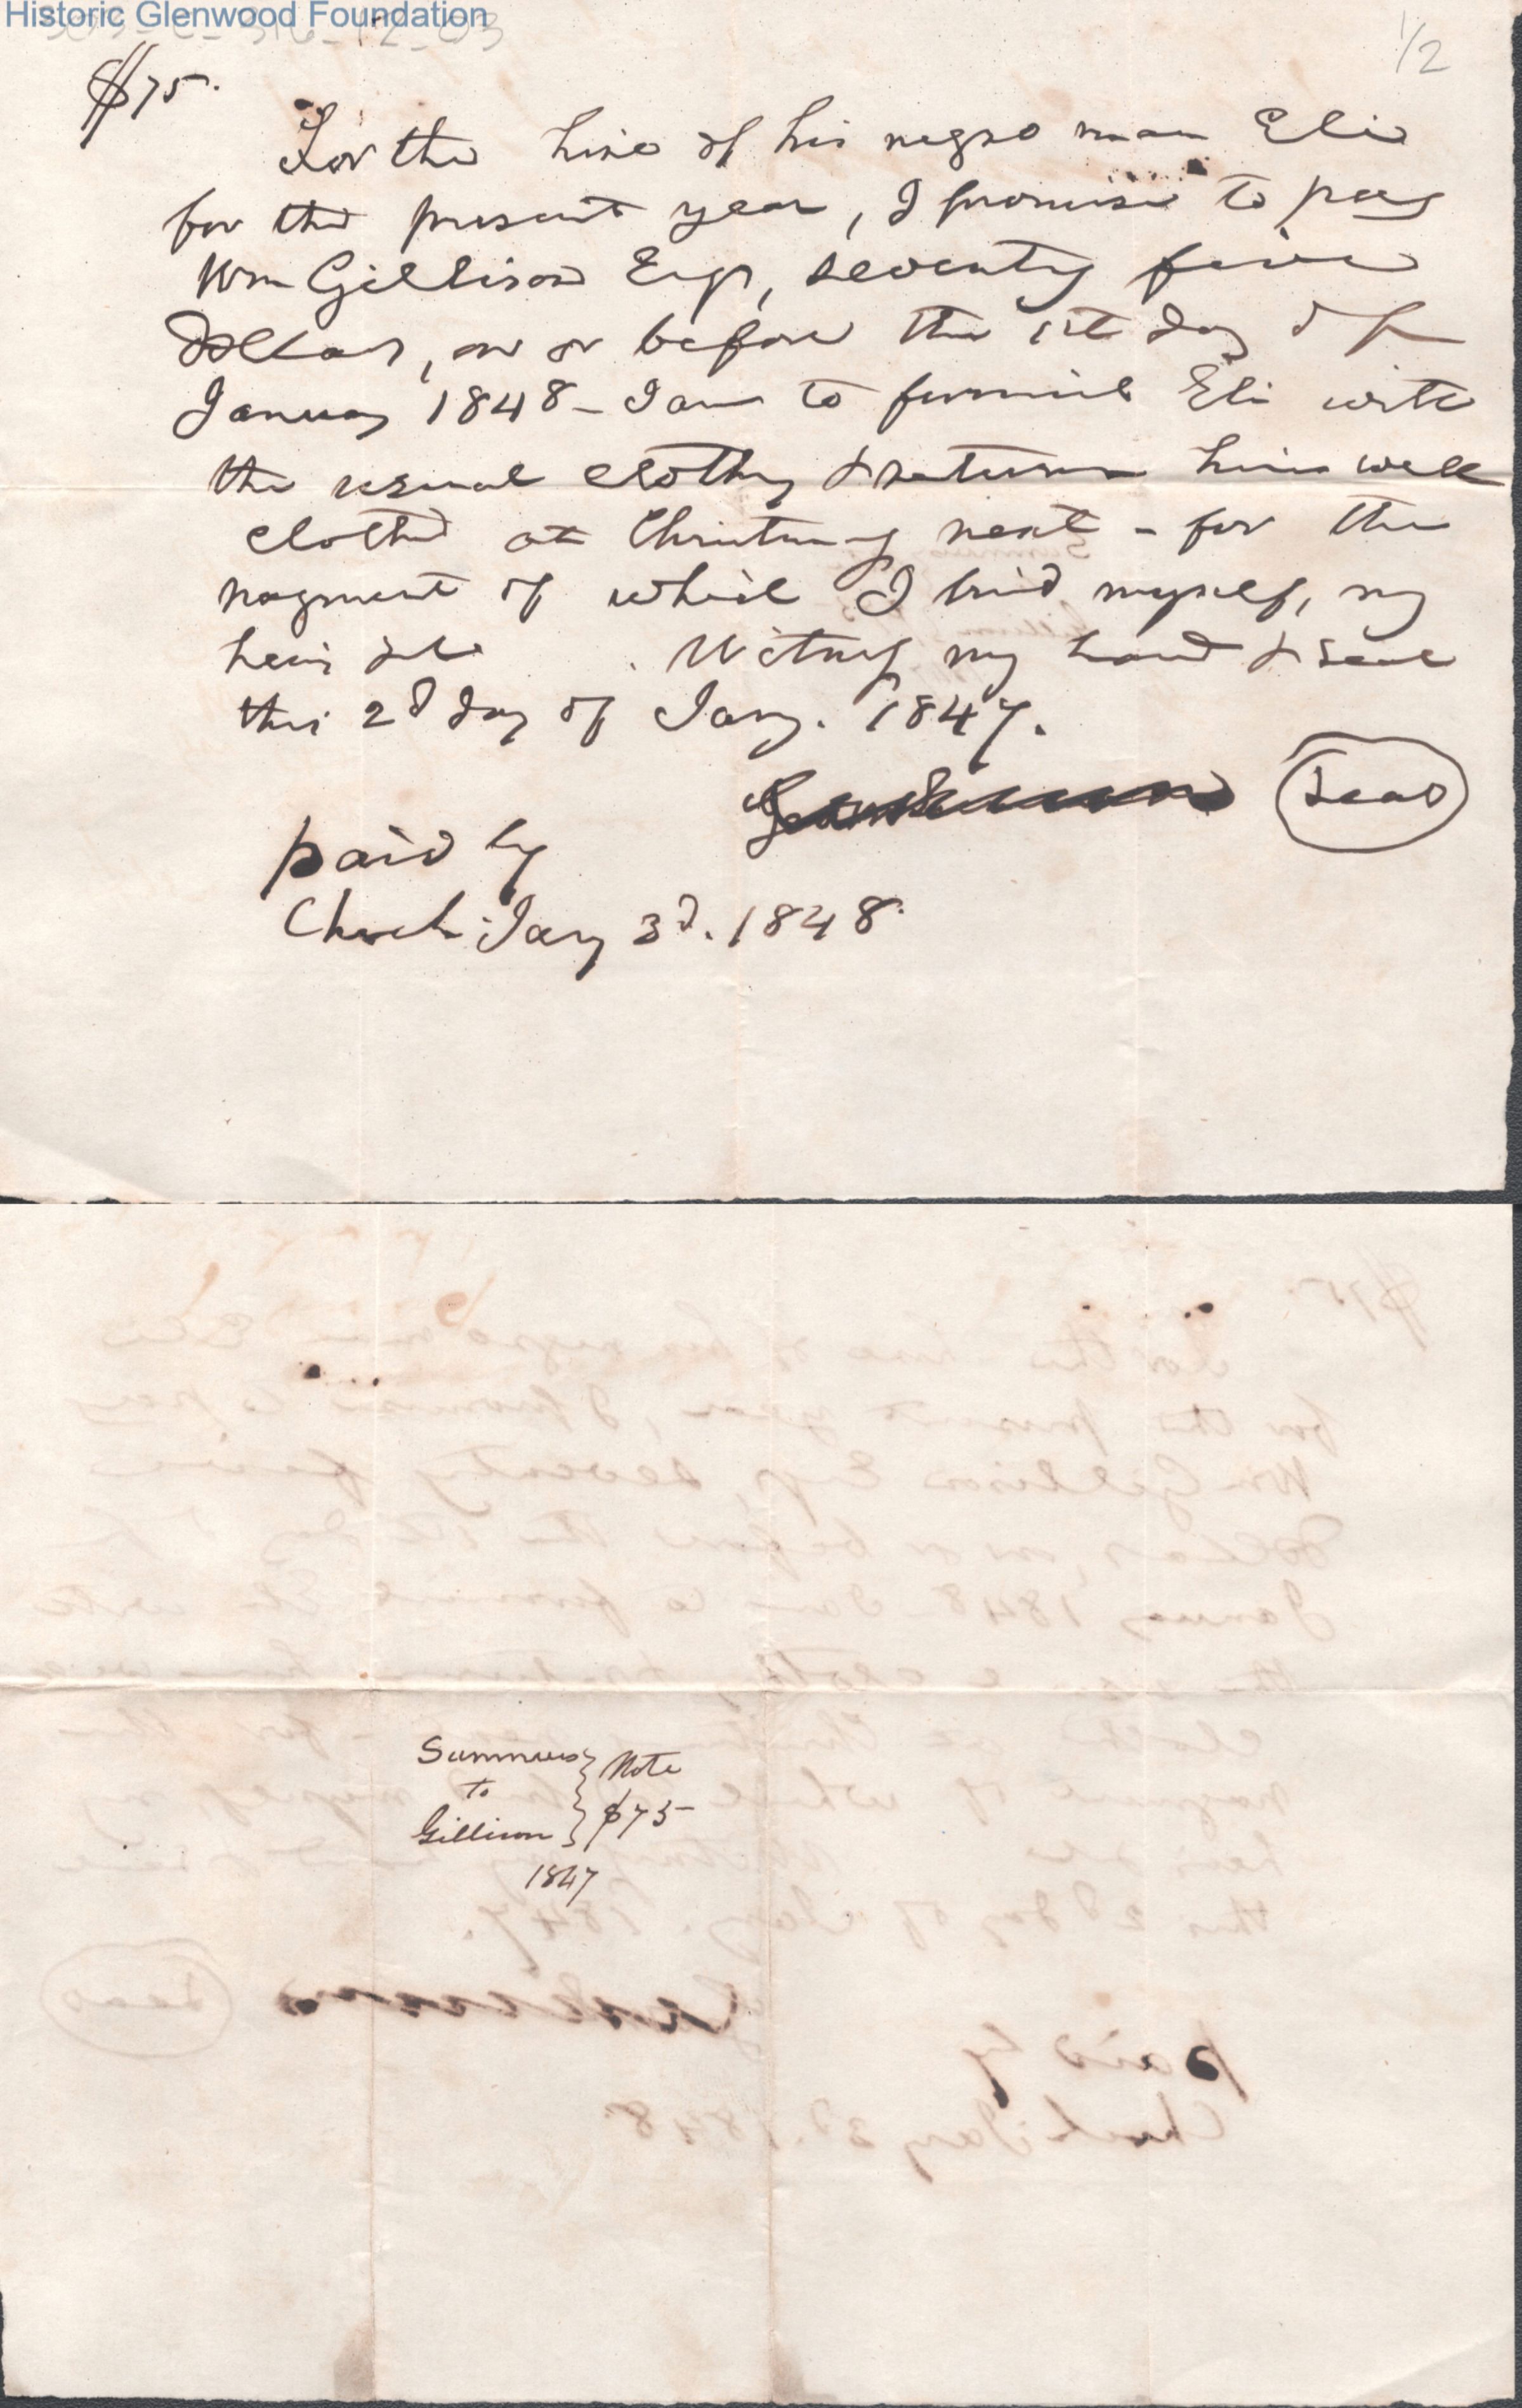 Historic Glenwood Foundation
1/2
$75.
For the hire of his negro man Eli
for the present year, I promise to pay
Wm Gillison Esqr, seventy five
Dollars, on or before the 1st day of
January 1848 - I am to furnish Eli with
the usual clothing & return him well
clothed at Christmas next - for the
payment of which I bind myself, my
heirs &c. Witness my hand & seal
this 2d day of Jany. 1847.
Seal
paid by
Check Jany 3d. 1848.
Summers } Note
to
Gillison } $75
1847